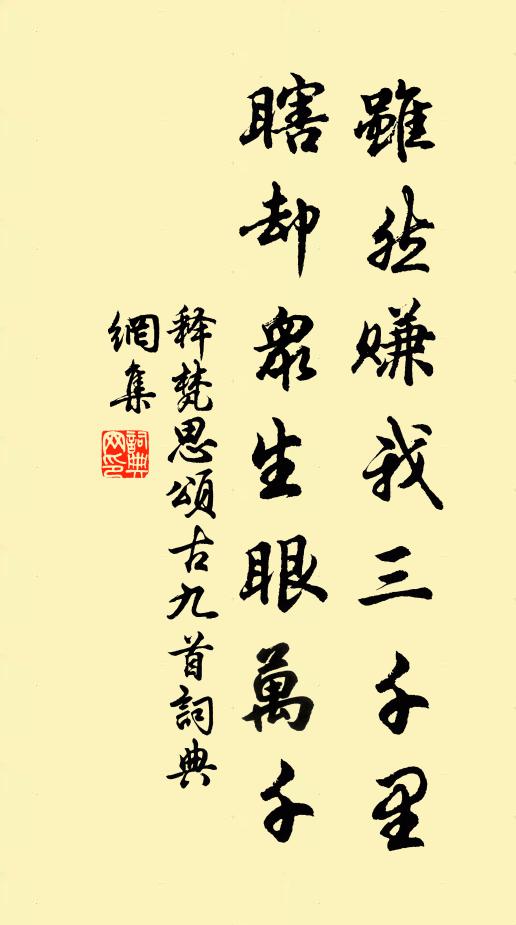 雖然賺我三千里
瞎却衆生眼萬千
释梵思頌古九首詞典
網集
詞典
网印